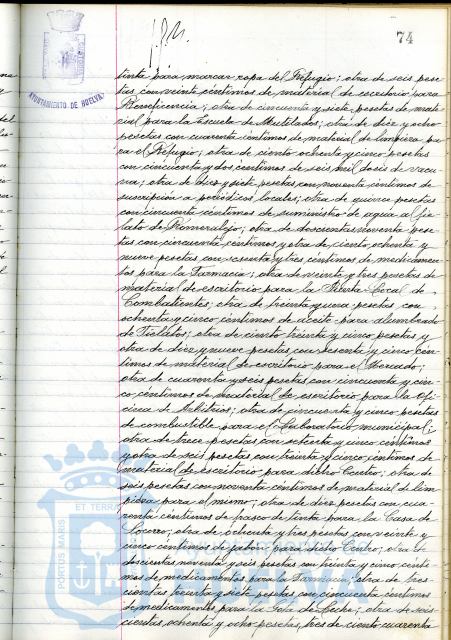 74
AYUNTAMIENTO DE HUELVA
tinta para marcar ropa del Refugio; otra de seis pese-
tas con veinte centimos de material de escritorio para
Beneficencia; otra de cincuenta y siete pesetas de mate-
rial para la Escuela de Mutilados; otra de diez y ocho
pesetas con cuarenta centimos de material de limpieza pa-
ra el Refugio; otra de ciento ochenta y cinco pesetas
con cincuenta y dos centimos de seis mil dosis de vacu-
na; otra de diez y siete pesetas con noventa centimos de
suscripcion a periodicos locales; otra de quince pesetas
con cincuenta centimos de suministro de agua al fie-
lato de Romeralejo; otra de doscientas noventa pese-
tas con cincuenta centimos y otra de ciento ochenta y
nueve pesetas con sesenta y tres centimos de medicamen-
tos para la Farmacia; otra de veinte y tres pesetas de
material de escritorio para la Junta Local de
Combatientes; otra de treinta y una pesetas con
ochenta y cinco centimos de aceite para alumbrado
de Fielatos; otra de ciento treinta y cinco pesetas y
otra de diez y nueve pesetas con sesenta y cinco cen-
timos de material de escritorio para el Mercado;
otra de cuarenta y seis pesetas con cincuenta y cin-
co centimos de material de escritorio para la Ofi-
cina de Arbitrios; otra de cincuenta y cinco pesetas
de combustible para el Laboratorio municipal;
otra de trece pesetas con ochenta y cinco centimos
y otra de seis pesetas con treinta y cinco centimos de
material de escritorio para dicho Centro; otra de
seis pesetas con noventa centimos de material de lim-
pieza para el mismo; otra de diez pesetas con cua-
renta centimos de frasco de tinta para la Casa de
Socorro; otra de ochenta y tres pesetas con veinte y
cinco centimos de jabon para dicho Centro; otra de
doscientas noventa y seis pesetas con treinta y cinco centi-
mos de medicamentos para la Farmacia; otra de tres-
cientas treinta y siete pesetas con cincuenta centimos
de medicamentos para la Gota de Leche; otra de seis-
cientas ochenta y ocho pesetas, tres de ciento cuarenta
PORTUS MARIS ET TERRAE